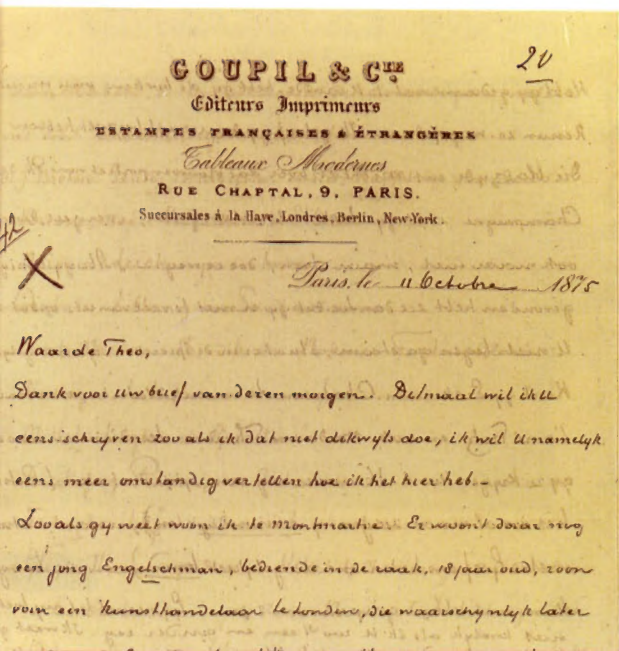 GOUPIL & CIE
20
Editeurs Imprimeurs
ESTAMPES FRANÇAISES & ÉTRANGÈRES
Tableaux Modernes
RUE CHAPTAL, 9, PARIS.
Succursales à la Haye, Londres, Berlin, New-York.
42
X
Paris, le 11 Octobre 1875
Waarde Theo,
Dank voor uw brief van dezen morgen. Ditmaal wil ik U
eens schrijven zooals ik dat niet dikwyls doe, ik wil U namelyk
eens meer omstandig vertellen hoe ik het hier heb –
Zooals gy weet woon ik te Montmartre. Er woont daar nog
een jong Engelschman, bediende in de zaak, 18 jaar oud, zoon
van een kunsthandelaar te Londen, die waarschynlyk later